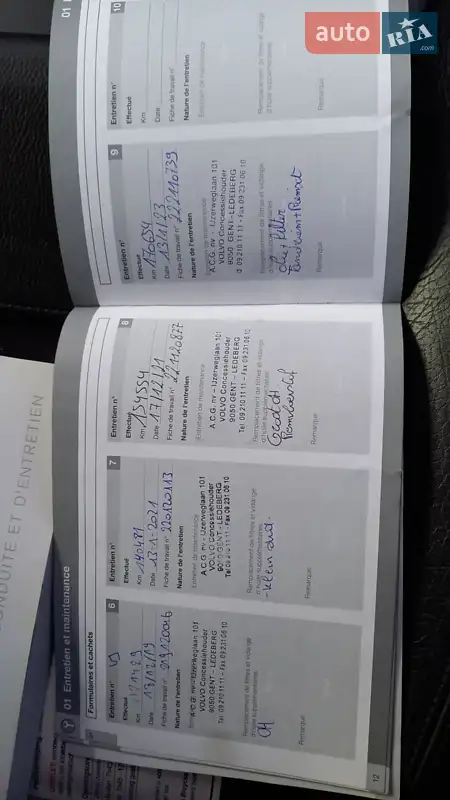 auto RIA.com
CONDUITE ET D'ENTRETIEN
01 Entretien et maintenance
Formulaires et cachets
Entretien n° 6
Effectué
Km
Date 13/12/19
Fiche de travail n°
Nature de l'entretien
A.C.G. nv - IJzerweglaan 101
VOLVO Concessiehouder
9050 GENT - LEDEBERG
Tel 09 210 11 11 - Fax 09 231 06 10
Remplacement de filtres et vidange
d'huile supplémentaires
Remarque
12
Entretien n° 7
Effectué
Km 140481
Date 13-1-2021
Fiche de travail n° 220120113
Nature de l'entretien
Entretien de maintenance
A.C.G. nv - IJzerweglaan 101
VOLVO Concessiehouder
9050 GENT - LEDEBERG
Tel 09 210 11 11 - Fax 09 231 06 10
Remplacement de filtres et vidange
d'huile supplémentaires
- klein ond.
Remarque
Entretien n° 8
Effectué
Km 154554
Date 17/12/21
Fiche de travail n° 221120877
Nature de l'entretien
Entretien de maintenance
A.C.G. nv - IJzerweglaan 101
VOLVO Concessiehouder
9050 GENT - LEDEBERG
Tel 09 210 11 11 - Fax 09 231 06 10
Remplacement de filtres et vidange
d'huile supplémentaires
Remarque
Entretien n° 9
Effectué
Km 170634
Date 13/1/23
Fiche de travail n° 222110739
Nature de l'entretien
Entretien de maintenance
A.C.G. nv - IJzerweglaan 101
VOLVO Concessiehouder
9050 GENT - LEDEBERG
09 210 11 11 - Fax 09 231 06 10
Remplacement de filtres et vidange
d'huile supplémentaires
Olie + filter
Remarque
01
Entretien n° 10
Effectué
Km
Date
Fiche de travail n°
Nature de l'entretien
Entretien de maintenance
Remplacement de filtres et vidange
d'huile supplémentaires
Remarque